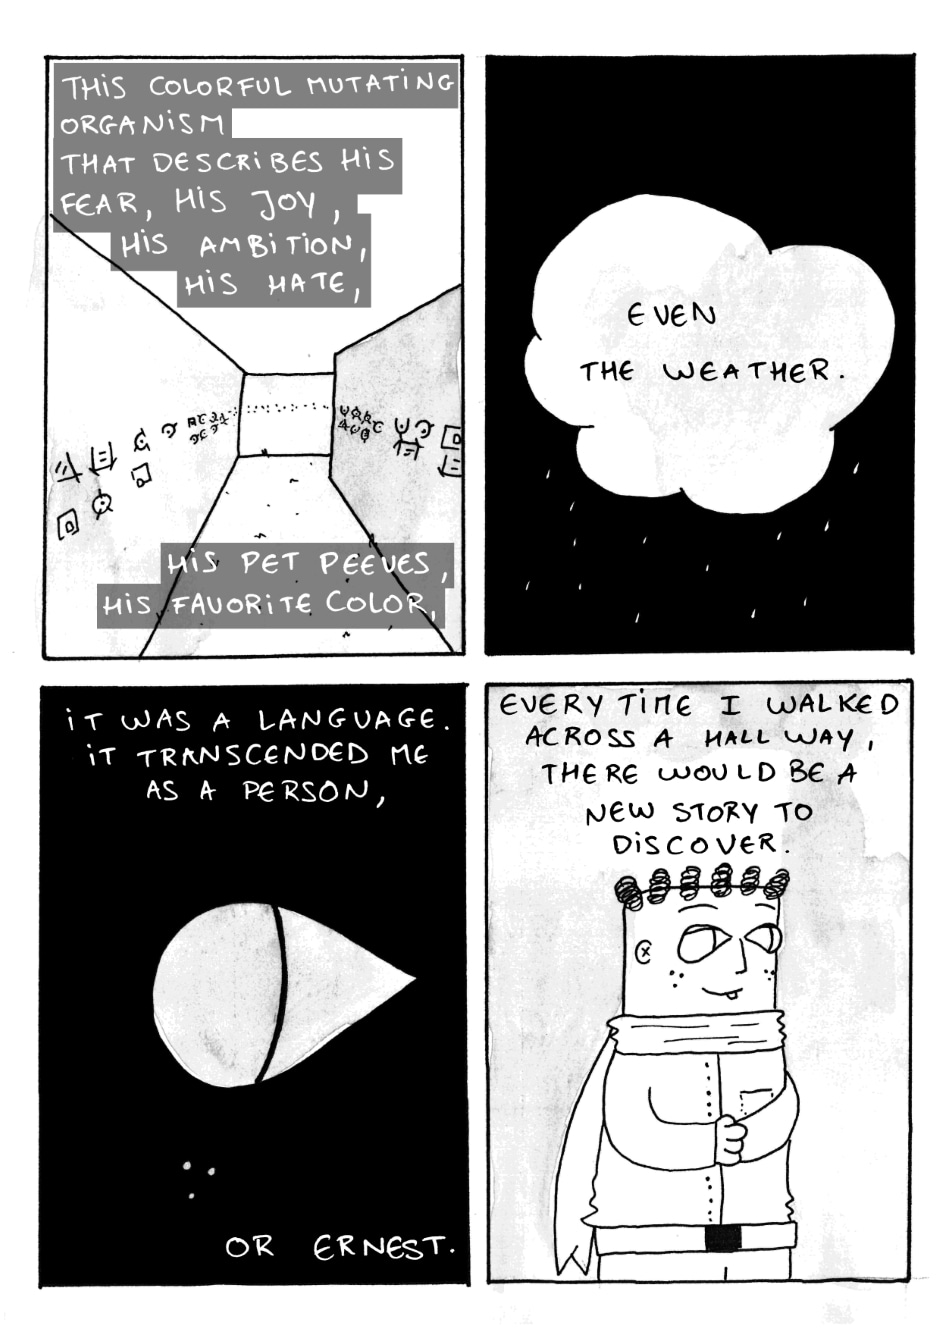 THiS COLORFUL MUTATiNG
ORGANiSM
THAT DESCRiBES HiS
FEAR, HiS JOY,
HiS AMBiTiON,
HiS HATE,
HiS PET PEEVES,
HiS FAVORiTE COLOR,
EVEN
THE WEATHER.
iT WAS A LANGUAGE.
iT TRANSCENDED ME
AS A PERSON,
OR ERNEST.
EVERY TiME I WALKED
ACROSS A HALL WAY,
THERE WOULD BE A
NEW STORY TO
DiSCOVER.